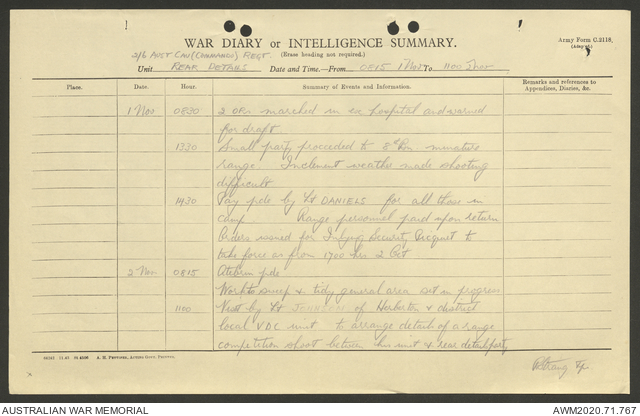 WAR DIARY or INTELLIGENCE SUMMARY.
Army Form C.2118.
2/6 AUST CAV (COMMANDO) REGT.
(Erase heading not required.)
Unit REAR DETAILS Date and Time—From 0815 1 Nov To 1100 2 Nov
Place. Date. Hour. Summary of Events and Information. Remarks and references to Appendices, Diaries, &c.
1 Nov 0830 2 ORs marched in ex hospital and warned
for draft.
1330 Small party proceeded to 8 Bn miniature
range. Inclement weather made shooting
difficult
1430 Pay pde by Lt DANIELS for all those in
camp. Range personnel paid upon return
Orders issued for Security Picquet to
take force as from 1700 hrs 2 Oct
2 Nov 0815 Atebrin pde
Work to sweep & tidy general area set in progress
1100 Visit by Lt JOHNSON of Herberton & district
local VDC unit to arrange details of a range
competition shoot between his unit & rear details party
A. H. PETTIFER, ACTING GOVT. PRINTER.
AUSTRALIAN WAR MEMORIAL
AWM2020.71.767